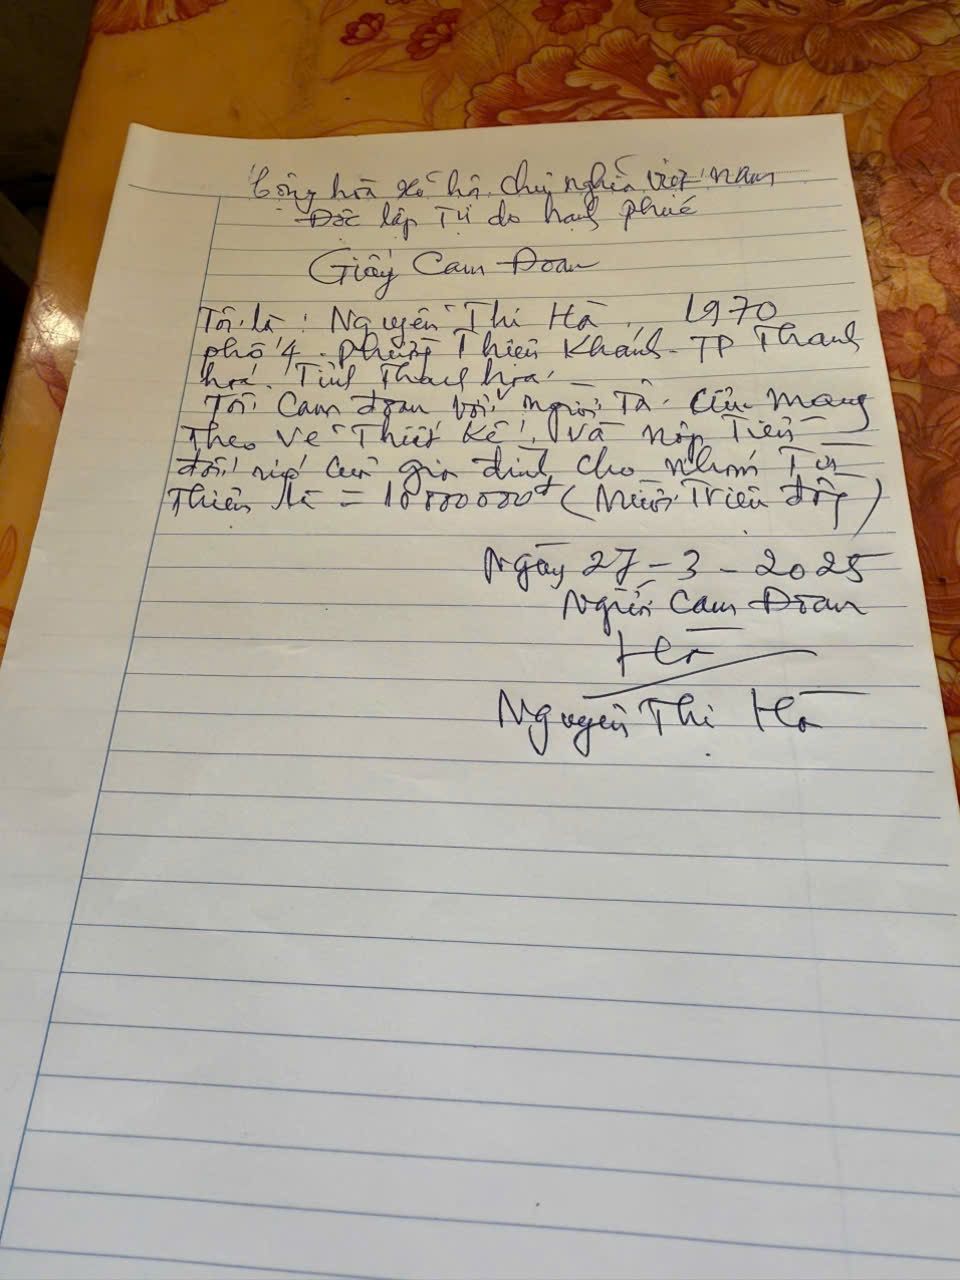 Cộng hòa xã hội chủ nghĩa việt nam
Độc lập Tự do hạnh phúc
Giấy Cam Đoan
Tôi là: Nguyễn Thị Hà. 1970
phố 4. phường Thiên Khánh. TP Thanh
hoá. Tỉnh Thanh hóa.
Tôi Cam đoan với người Tà Cứu mạng
Theo Vẽ Thiết Kế. Và nộp Tiền
đối của gia đình cho nhóm Từ
Thiện là = 10000000đ (Mười Triệu đồng)
Ngày 27-3-2025
Người Cam Đoan
Hà
Nguyễn Thị Hà